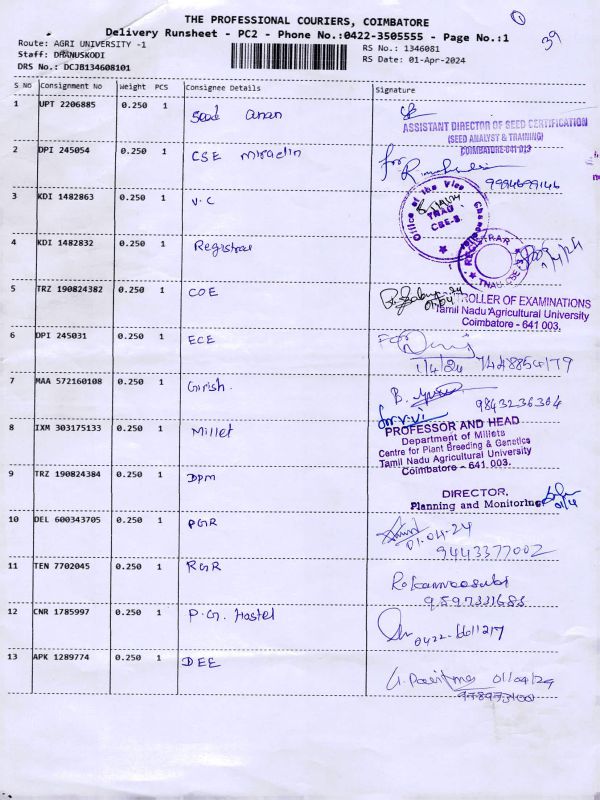 THE PROFESSIONAL COURIERS, COIMBATORE
Delivery Runsheet - PC2 - Phone No.:0422-3505555 - Page No.:1
1
39
Route: AGRI UNIVERSITY -1
RS No.: 1346081
Staff: DHANUSKODI
RS Date: 01-Apr-2024
DRS No.: DCJB134608101
S NO Consignment No Weight PCS Consignee Details Signature
1 UPT 2206885 0.250 1 Seed
ASSISTANT DIRECTOR OF SEED CERTIFICATION
(SEED ANALYST & TRAINING)
COIMBATORE-641 013
2 DPI 245054 0.250 1 CSE
for
9994699146
3 KDI 1482863 0.250 1 V.C
Office of the Vice Chancellor
TNAU
CBE-3.
4 KDI 1482832 0.250 1 Registrar
REGISTRAR
TNAU CBE-3
5 TRZ 190824382 0.250 1 COE
01.04
TROLLER OF EXAMINATIONS
Tamil Nadu Agricultural University
Coimbatore - 641 003.
6 DPI 245031 0.250 1 ECE
For
1/4/24
7 MAA 572160108 0.250 1 Girish.
9843236304
8 IXM 303175133 0.250 1 Millet
for
PROFESSOR AND HEAD
Department of Millets
Centre for Plant Breeding & Genetics
Tamil Nadu Agricultural University
Coimbatore - 641 003.
9 TRZ 190824384 0.250 1 DPM
DIRECTOR,
Planning and Monitoring
10 DEL 600343705 0.250 1 PGR
01-04-24
9443377002
11 TEN 7702045 0.250 1 RGR
12 CNR 1785997 0.250 1 P.G. Hostel
0422-6611217
13 APK 1289774 0.250 1 DEE
01/04/24